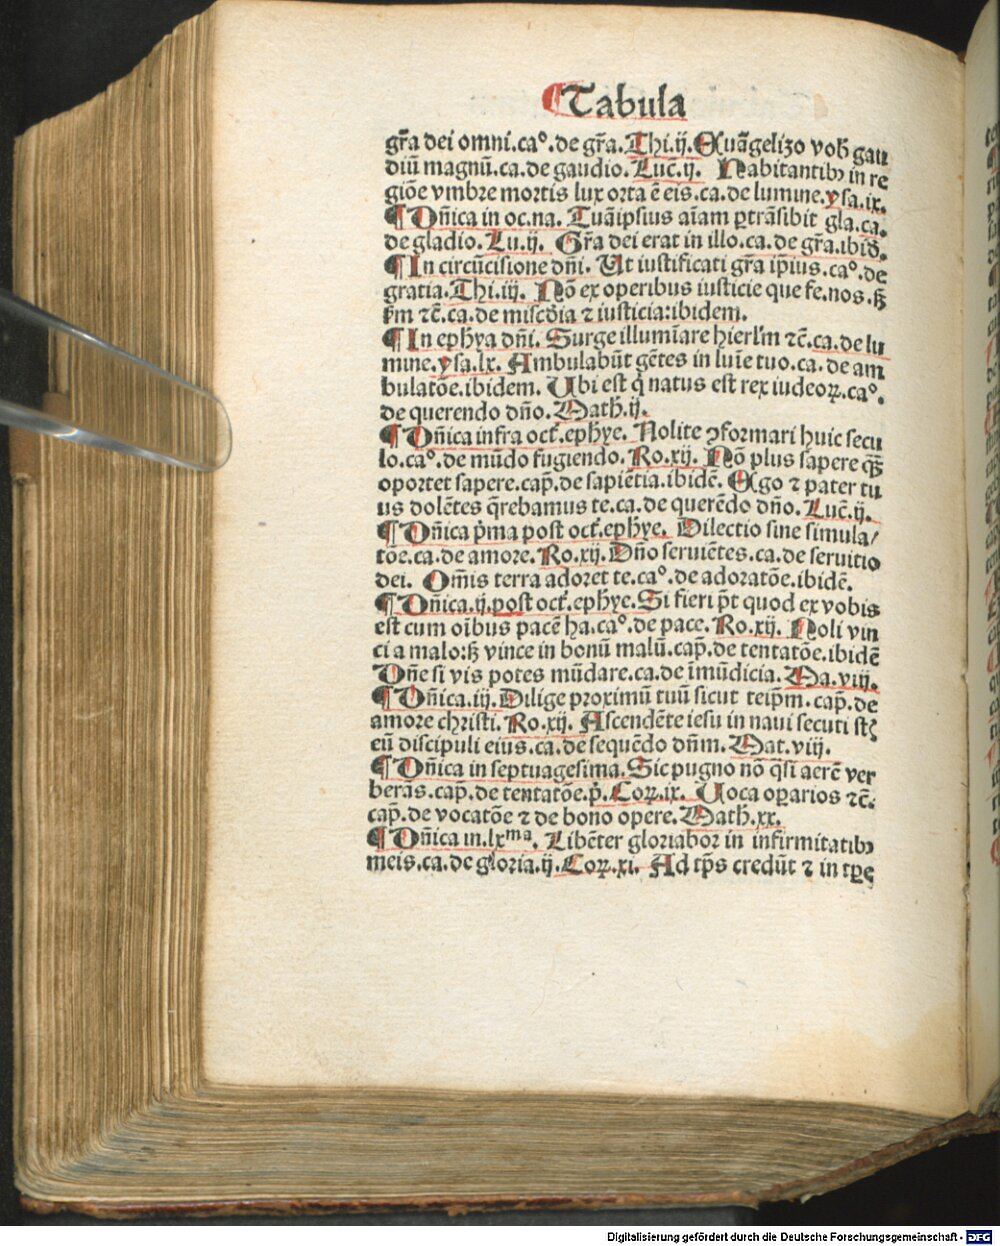 ¶Tabula
gr̄a dei omni.ca°.de gr̄a.Thi.ij.Euāgelizo vob̄ gau
diū magnū.ca.de gaudio.Luc.ij. Habitantibꝰ in re
giōe vmbre mortis lux orta ē eis.ca.de lumine.ysa.ix.
¶Dn̄ica in oc.na. Tuāipsius aīam ꝑtrāsibit gla.ca.
de gladio.Lu.ij. Gr̄a dei erat in illo.ca.de gr̄a.ibid̄.
¶In circūcisione dn̄i. Ut iustificati gr̄a ip̄ius.ca°.de
gratia.Thi.iij. Nō ex operibus iusticie que fe.nos.sꝫ
s̄m ⁊c̄.ca.de misc̄dia ⁊ iusticia:ibidem.
¶In eph̄ya dn̄i. Surge illumīare hierl'm ⁊c̄.ca.de lu
mine.ysa.lx. Ambulabūt gētes in lu̅ie tuo.ca.de am
bulatōe.ibidem. Ubi est q̇ natus est rex iudeoꝝ.ca°.
de querendo dn̄o.Math̄.ij.
¶Dn̄ica infra oct̄.eph̄ye. Nolite ꝯformari huic secu
lo.ca°.de mūdo fugiendo.Ro.xij. Nō plus sapere q̄ꝫ
oportet sapere.cap̄.de sapiētia.ibidē. Ego ⁊ pater tu
us dolētes q̄rebamus te.ca.de querēdo dn̄o.Luc̄.ij.
¶Dn̄ica p̄ma post oct̄.eph̄ye. Dilectio sine simula/
tōe.ca.de amore.Ro.xij.Dn̄o seruiētes.ca.de seruitio
dei. Om̄is terra adoret te.ca°.de adoratōe.ibidē.
¶Dn̄ica.ij.post oct̄.eph̄ye.Si fieri p̄t quod ex vobis
est cum oībus pacē ha.ca°.de pace.Ro.xij. Noli vin
ci a malo:sꝫ vince in bonū malū.cap̄.de tentatōe.ibidē
Dn̄e si vis potes mūdare.ca.de īmūdicia.Ma.viij.
¶Dn̄ica.iij.Dilige proximū tuū sicut teip̄m.cap̄.de
amore christi.Ro.xij. Ascendēte iesu in naui secuti st̄
eū discipuli eius.ca.de sequēdo dn̄m.Mat.viij.
¶Dn̄ica in septuagesima.Sic pugno nō q̄si aerē ver
berās.cap̄.de tentatōe.p̄.Coꝝ.ix. Uoca oꝑarios ⁊c̄.
cap̄.de vocatōe ⁊ de bono opere.Math̄.xx.
¶Dn̄ica in.lxᵐᵃ. Libēter gloriabor in infirmitatibꝰ
meis.ca.de gloria.ij.Coꝝ.xi. Ad tp̄s credūt ⁊ in tꝑe
Digitalisierung gefördert durch die Deutsche Forschungsgemeinschaft - DFG